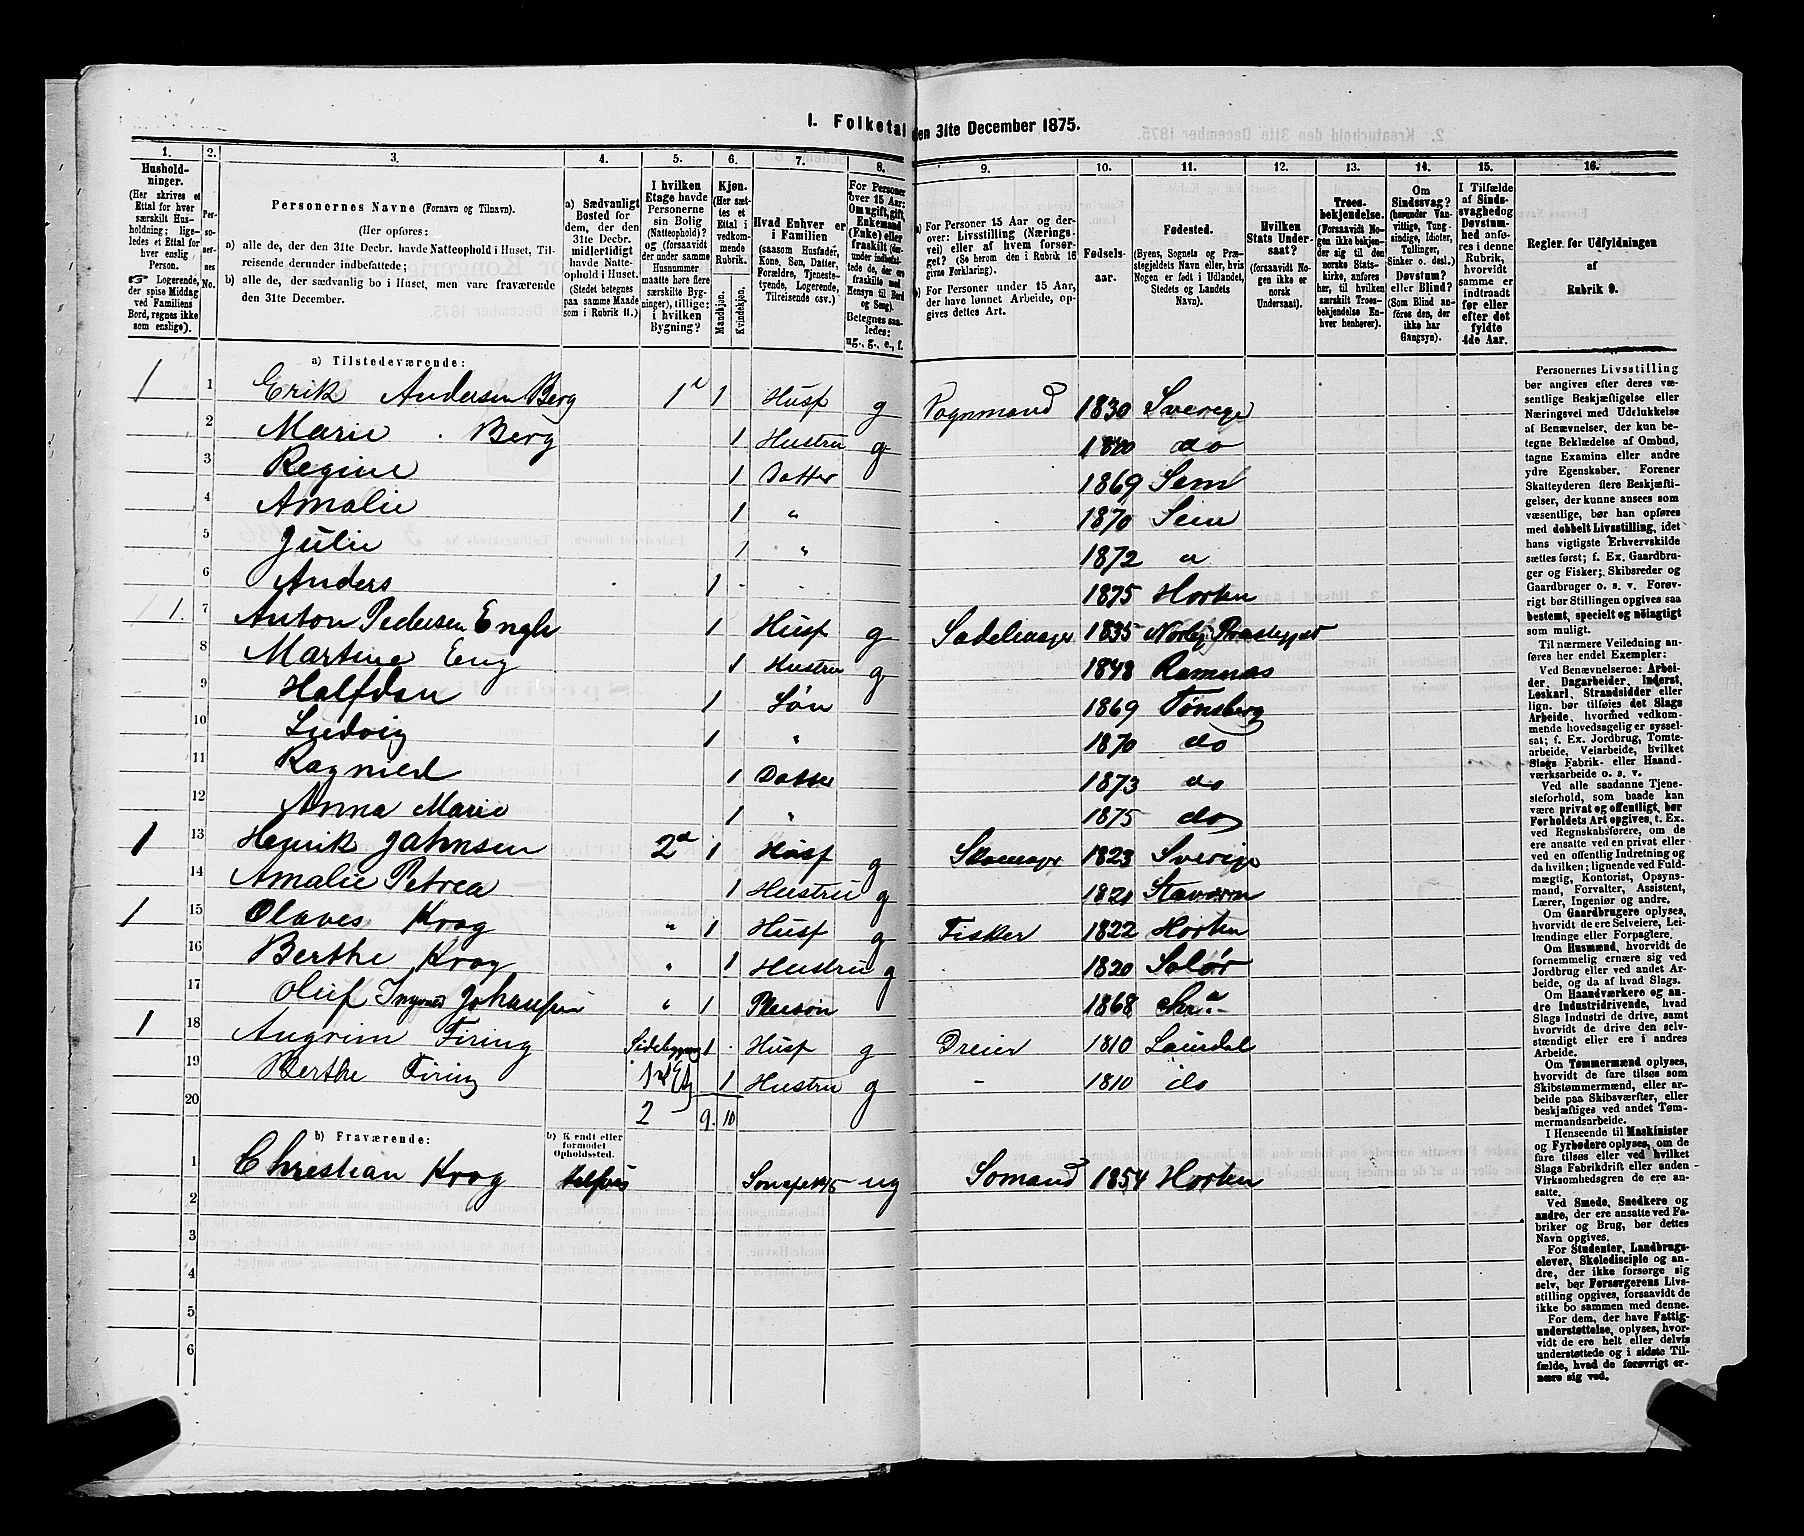 1. Folketal den 31te December 1875.
1. 2. 3. 4. 5. 6. 7. 8. 9. 10. 11. 12. 13. 14. 15. 16.
Hushold-
ninger.
(Her skrives et
Ettal for hver
særskilt Hus-
holdning; lige-
ledes et Ettal for
hver enslig
Person.
Logerende,
der spise Middag
ved Familiens
Bord, regnes ikke
som enslige).
Per-
so-
ner-
nes
No.
Personernes Navne (Fornavn og Tilnavn).
(Her opføres:
a) alle de, der den 31te Decbr. havde Natteophold i Huset, Til-
reisende derunder indbefattede;
b) alle de, der sædvanlig bo i Huset, men vare fraværende
den 31te December.
a) Sædvanligt
Bosted for
dem, der den
31te Decbr.
midlertidigt
havde Natte-
ophold i Huset.
(Stedet betegnes
paa samme Maade
som i Rubrik 11.)
I hvilken
Etage havde
Personerne
sin Bolig
(Natteophold)?
og (forsaavidt
der under samme
Husnummer
maatte høre flere
særskilte Byg-
ninger), tillige:
i hvilken
Bygning?
Kjøn.
(Her sæt-
tes et
Ettal i
vedkom-
mende
Rubrik.
Mandkjøn.
Kvindekjøn.
Hvad Enhver er
i Familien
(saasom Husfader,
Kone, Søn, Datter,
Forældre, Tjeneste-
tyende, Logerende,
Tilreisende osv.)
For Personer
over 15 Aar:
Om ugift, gift,
Enkemand
(Enke) eller
fraskilt
Betegnes saa-
ledes:
ug., g., e., f.
a) For Personer 15 Aar og der-
over: Livsstilling (Nærings-
vei) eller af hvem forsør-
get? (Se herom den i Rubrik 16
givne Forklaring).
b) For Personer under 15 Aar,
der have lønnet Arbeide, op-
gives dettes Art.
Fødsels-
aar.
Fødested.
(Byens, Sognets og Præ-
stegjeldets Navn eller, hvis
Nogen er født i Udlandet,
Stedets og Landets
Navn).
Hvilken
Stats Under-
saat?
(forsaavidt No-
gen ikke er
norsk
Undersaat).
Troes-
bekjendelse.
(Forsaavidt No-
gen ikke bekjen-
der sig til den
norske Stats-
kirke, anføres
her, til hvilken
særskilt Troes-
bekjendelse En-
hver henhører).
Om
Sindssvag?
(herunder Van-
vittige, Tung-
sindige, Idioter,
Tullinger,
Sinker o. desl.)
Døvstum?
eller Blind?
(Som Blind an-
føres den, der
ikke har
Gangsyn).
I Tilfælde
af Sinds-
svaghed og
Døvstum-
hed anfø-
res i denne
Rubrik,
hvorvidt
samme er
indtraadt
før eller
efter det
fyldte
4de Aar.
Regler for Udfyldningen
af
Rubrik 9.
a) Tilstedeværende:
1 1 Erik Andersen Berg 1 1 Husf g Vognmand 1830 Sverige
2 Marie Berg 1 Hustru g 1840 do
3 Regine 1 Datter 1869 Sem
4 Amalie 1 " 1870 Sem
5 Julie 1 " 1872 "
6 Anders 1 1875 Horten
1 7 Anton Pedersen 1 Husf g Sadelmager 1835
8 Martine Eng 1 Hustru g 1848 Ramnæs
9 Halfdan 1 Søn 1869 Tønsberg
10 Ludvig 1 " 1870 do
11 Ragnild 1 Datter 1873 do
12 Anna Marie 1 " 1875 do
1 13 Henrik Jahnsen 2 1 Husf g Skomager 1823 Sverige
14 Amalie Petrea 1 Hustru g 1820 Staværn
1 15 Olaves Krog " 1 Husf g Fisker 1822 Horten
16 Berthe Krog " 1 Hustru g 1820 Solør
17 Oluf Johansen " 1 Pleisøn 1868 Chr.a
1 18 Angrim Firing Sidebygn 1 Husf g Dreier 1810
19 Berthe Firing 1 Hustru g 1810 do
20 2 9 10
b) Fraværende: b) Kjendt eller
formodet
Opholdssted.
1 Christian Krog ug Sømand 1854 Horten
2
3
4
5
6
Personernes Livsstilling
bør angives efter deres væ-
sentlige Beskjæftigelse eller
Næringsvei med Udelukkelse
af Benævnelser, der kun be-
tegne Beklædelse af Ombud,
tagne Examina eller andre
ydre Egenskaber. Forener
Skatteyderen flere Beskjæfti-
gelser, der kunne ansees som
væsentlige, bør han opføres
med dobbelt Livsstilling, idet
hans vigtigste Erhvervskilde
sættes først; f. Ex. Gaardbru-
ger og Fisker; Skibsreder og
Gaardbruger o. s. v. Forøv-
rigt bør Stillingen opgives saa
bestemt, specielt og nøiagtigt
som muligt.
Til nærmere Veiledning an-
føres her endel Exempler:
Ved Benævnelserne: Arbei-
der, Dagarbeider, Inderst,
Løskarl, Strandsidder eller
lign. bør tilføies det Slags
Arbeide, hvormed vedkom-
mende hovedsagelig er syssel-
sat; f. Ex. Jordbrug, Tomte-
arbeide, Veiarbeide, hvilket
Slags Fabrik- eller Haand-
værksarbeide o. s. v.
Ved alle saadanne Tjene-
steforhold, som baade kan
være private og offentligt, bør
Forholdets Art opgives, t. Ex.
ved Regnskabsførere, om de
ere ansatte ved en privat eller
ved en offentlig Indretning og
da hvilken; lignende ved Fuld-
mægtig, Kontorist, Opsyns-
mand, Forvalter, Assistent,
Lærer, Ingeniør og andre.
Om Gaardbrugere oplyses,
hvorvidt de ere Selveiere, Lei-
lændinge eller Forpagtere.
Om Husmænd, hvorvidt de
fornemmelig ernære sig ved
Jordbrug eller ved andet Ar-
beide, og da af hvad Slags.
Om Haandværkere og an-
dre Industridrivende, hvad
Slags Industri de drive, samt
hvorvidt de drive den selv-
stændigt eller ere i andres
Arbeide.
Om Tømmermænd oplyses,
hvorvidt de fare tilsøs som
Skibstømmermænd, eller ar-
beide paa Skibsværfter, eller
beskjæftiges ved andet Tøm-
mermandsarbeide.
I Henseende til Maskinister
og Fyrbødere oplyses, om de
fare tilsøs eller ved hvilket
Slags Fabrikdrift eller anden
Virksomhedsgren de ere an-
satte.
Ved Smede, Snedkere og
andre, der ere ansatte ved Fa-
briker og Brug, bør dettes
Navn opgives.
For Studenter, Landbrugs-
elever, Skoledisciple og an-
dre, der ikke forsørge sig
selv, bør Forsørgerens Livs-
stilling opgives, forsaavidt de
ikke bo sammen med denne.
For dem, der have Fattig-
understøttelse, oplyses, hvor-
vidt de ere helt eller delvis
understøttede og i sidste Til-
fælde, hvad de forøvrigt er-
nære sig ved.